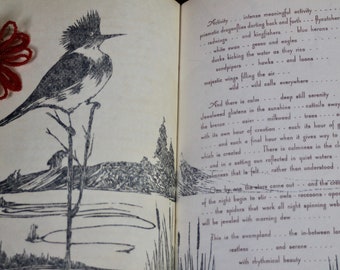 Activity . . . . intense meaningful activity . . . .
prismatic dragonflies darting back and forth . . flycatchers
. . redwings . . and kingfishers . . blue herons
white swan . . geese and eagles
ducks kicking the water as they rise . .
sandpipers . . hawks . . and loons
majestic wings filling the air
wild . . wild calls everywhere
And there is calm . . deep still serenity
jeweled glittere in the sunshine . . cattails sway
the breeze . . asters . . milkweed . . trees
with its own hour of creation . . each its hour of
and such a final hour when it gives way to
which is created . . There is calmness in the
and in a setting sun reflected in quiet waters
that is felt . . rather than understood
the stars come out . . and the
of the night begin to stir . . owls . . raccoons
the spiders that work all night spinning webs
will be jeweled with morning dew
This is the swampland . . the in-between land
restless . . and serene
with rhythmical beauty